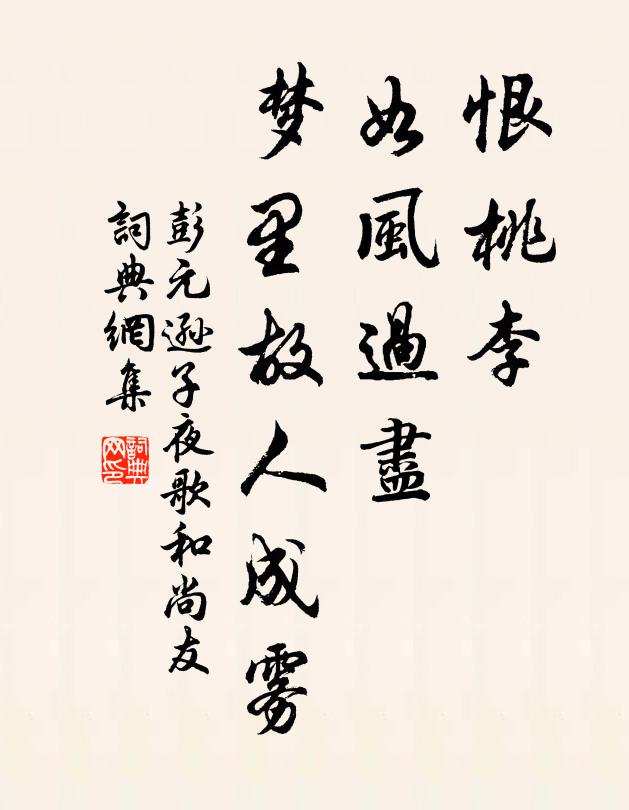 恨桃李
如風過盡
梦里故人成雾
彭元遜子夜歌和尚友
詞典網集
詞典网印